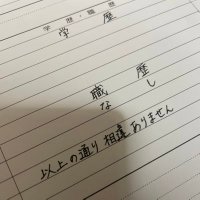 学歴・職歴
学 歴
職 歴
なし
以上の通り相違ありません